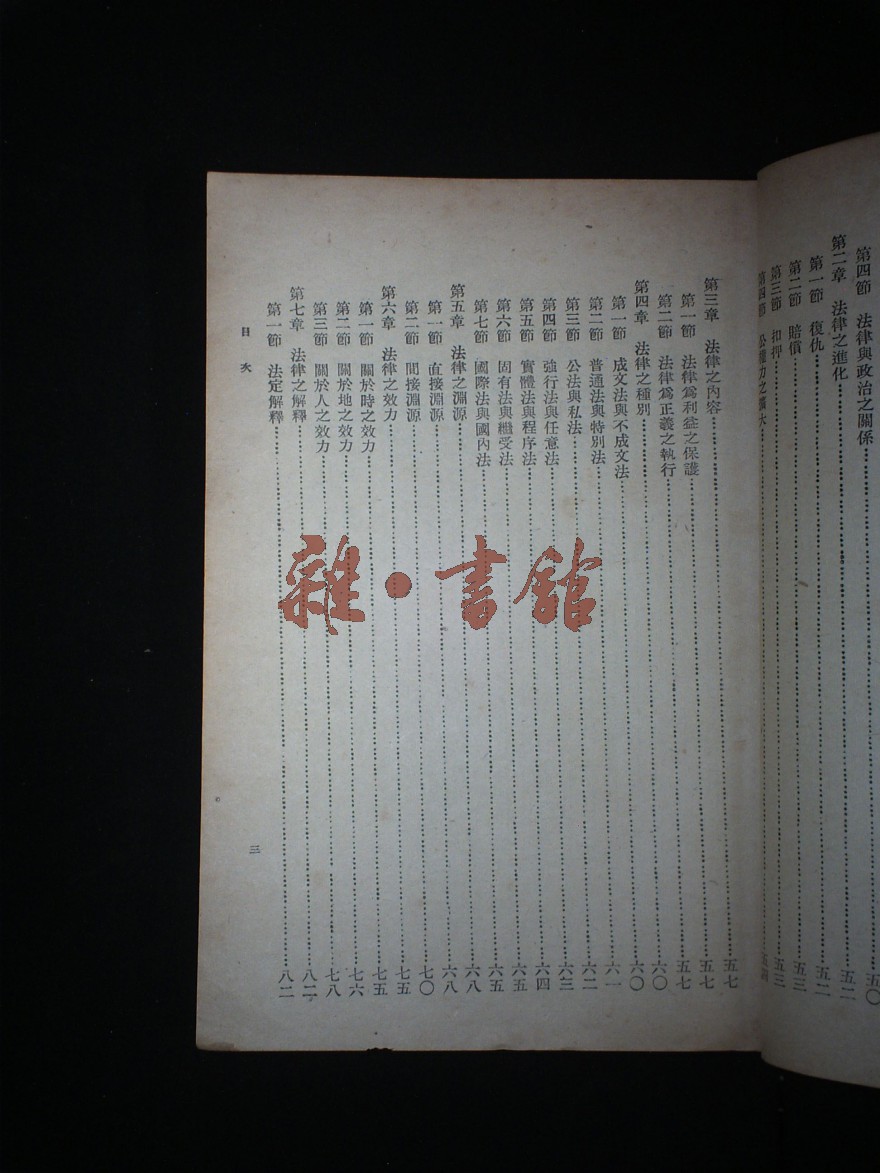 第四節　法律與政治之關係……五〇
第二章　法律之進化……五二
第一節　復仇……五二
第二節　賠償……五三
第三節　扣押……五三
第四節　公權力之擴大……五四
第三章　法律之內容……五七
第一節　法律爲利益之保護……五七
第二節　法律爲正義之執行……五七
第四章　法律之種別……六〇
第一節　成文法與不成文法……六〇
第二節　普通法與特別法……六一
第三節　公法與私法……六二
第四節　強行法與任意法……六三
第五節　實體法與程序法……六四
第六節　固有法與繼受法……六五
第七節　國際法與國內法……六五
第五章　法律之淵源……六八
第一節　直接淵源……六八
第二節　間接淵源……七〇
第六章　法律之效力……七五
第一節　關於時之效力……七五
第二節　關於地之效力……七六
第三節　關於人之效力……七八
第七章　法律之解釋……八二
第一節　法定解釋……八二
目次
三
雜·書館